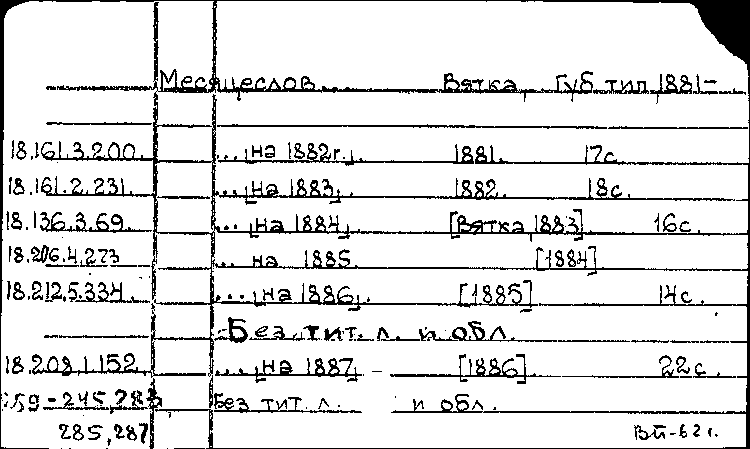 Месяцеслов... Вятка, Губ тип, 1881-
18.161.3.200. ...[на 1882г.]. 1881. 17с.
18.161.2.231. ...[на 1883]. 1882. 18с.
18.136.3.69. ...[на 1884]. [Вятка, 1883] 16с.
18.206.4.273 ... на 1885. [1884]
18.212.5.334. ...[на 1886]. [1885] 14с.
- Без. тит. л. и обл.
18.208.1.152. ...[на 1887] - [1886]. 22с.
59-245,283 Без тит. л. и обл.
285,287 ВП-62г.